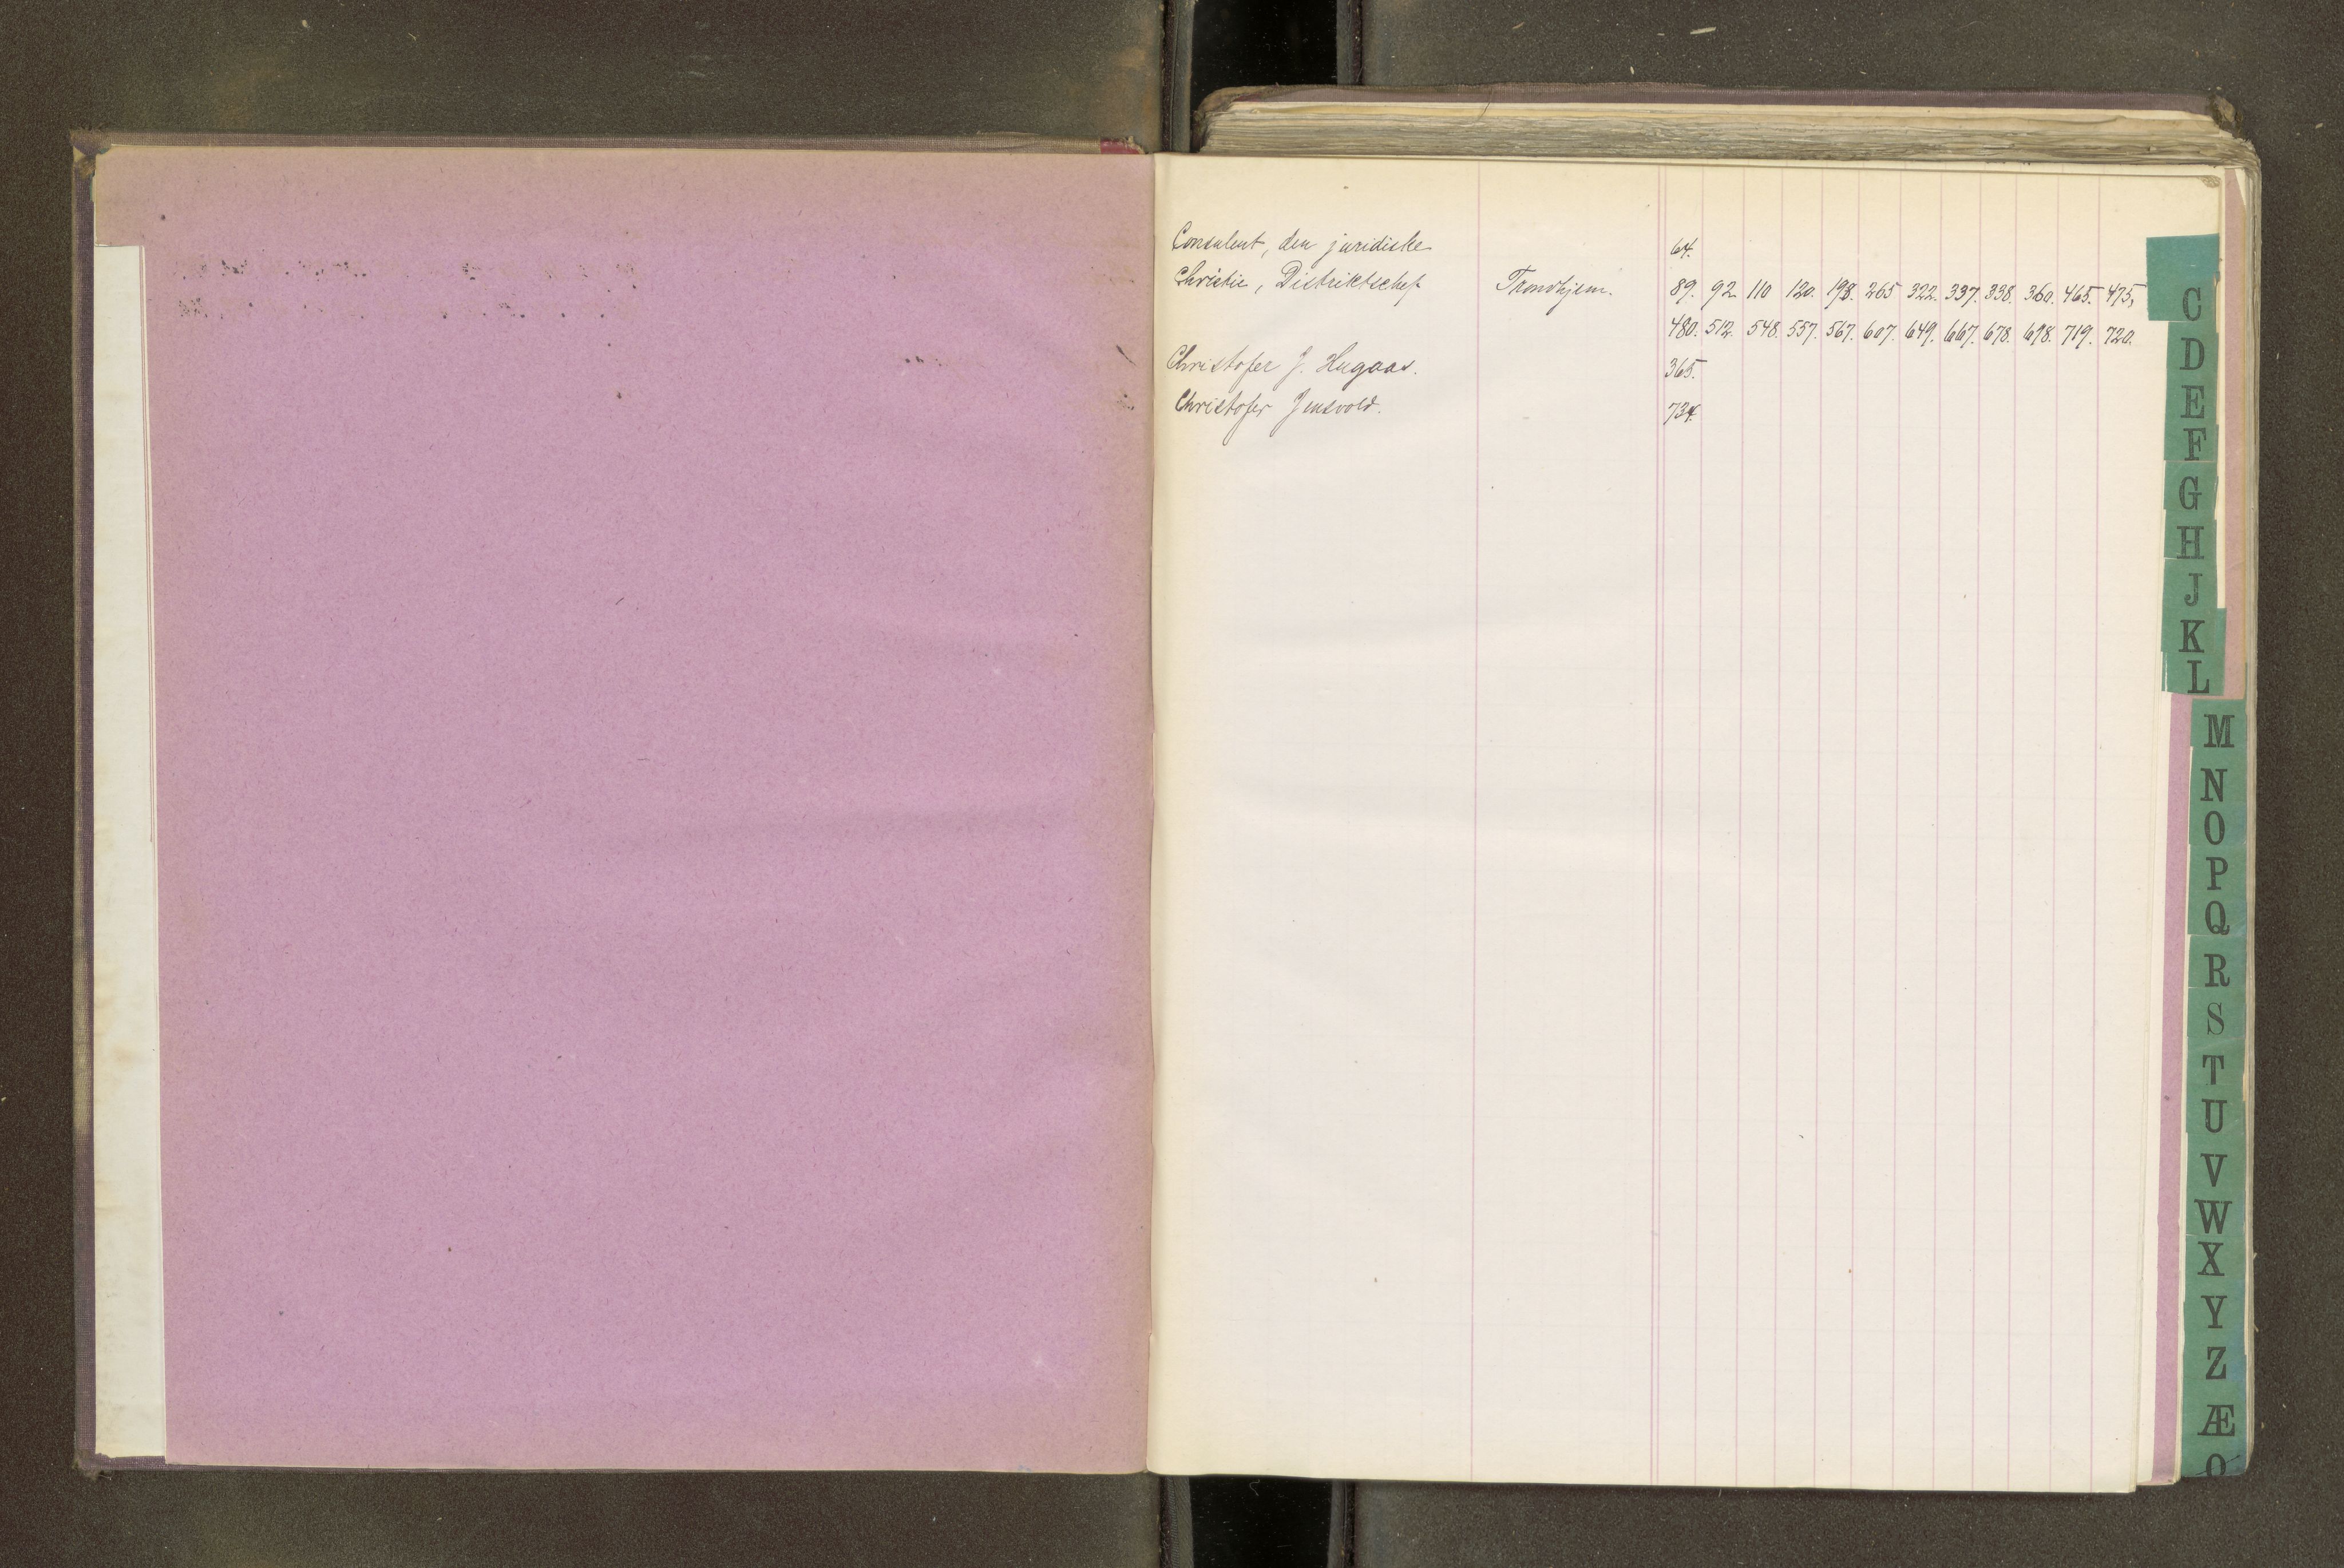 Consulent, den juridiske 64.
Christie, Distriktschef Trondhjem. 89. 92. 110 120. 198. 265 322. 337. 338. 360. 465. 475,
480. 512. 548. 557. 567. 607. 649. 667. 678. 698. 719. 720.
Christofer J. Hugaas. 365.
Christofer Jensvold. 734.
C
D
E
F
G
H
J
K
L
M
N
O
P
Q
R
S
T
U
V
W
X
Y
Z
Æ
Ø